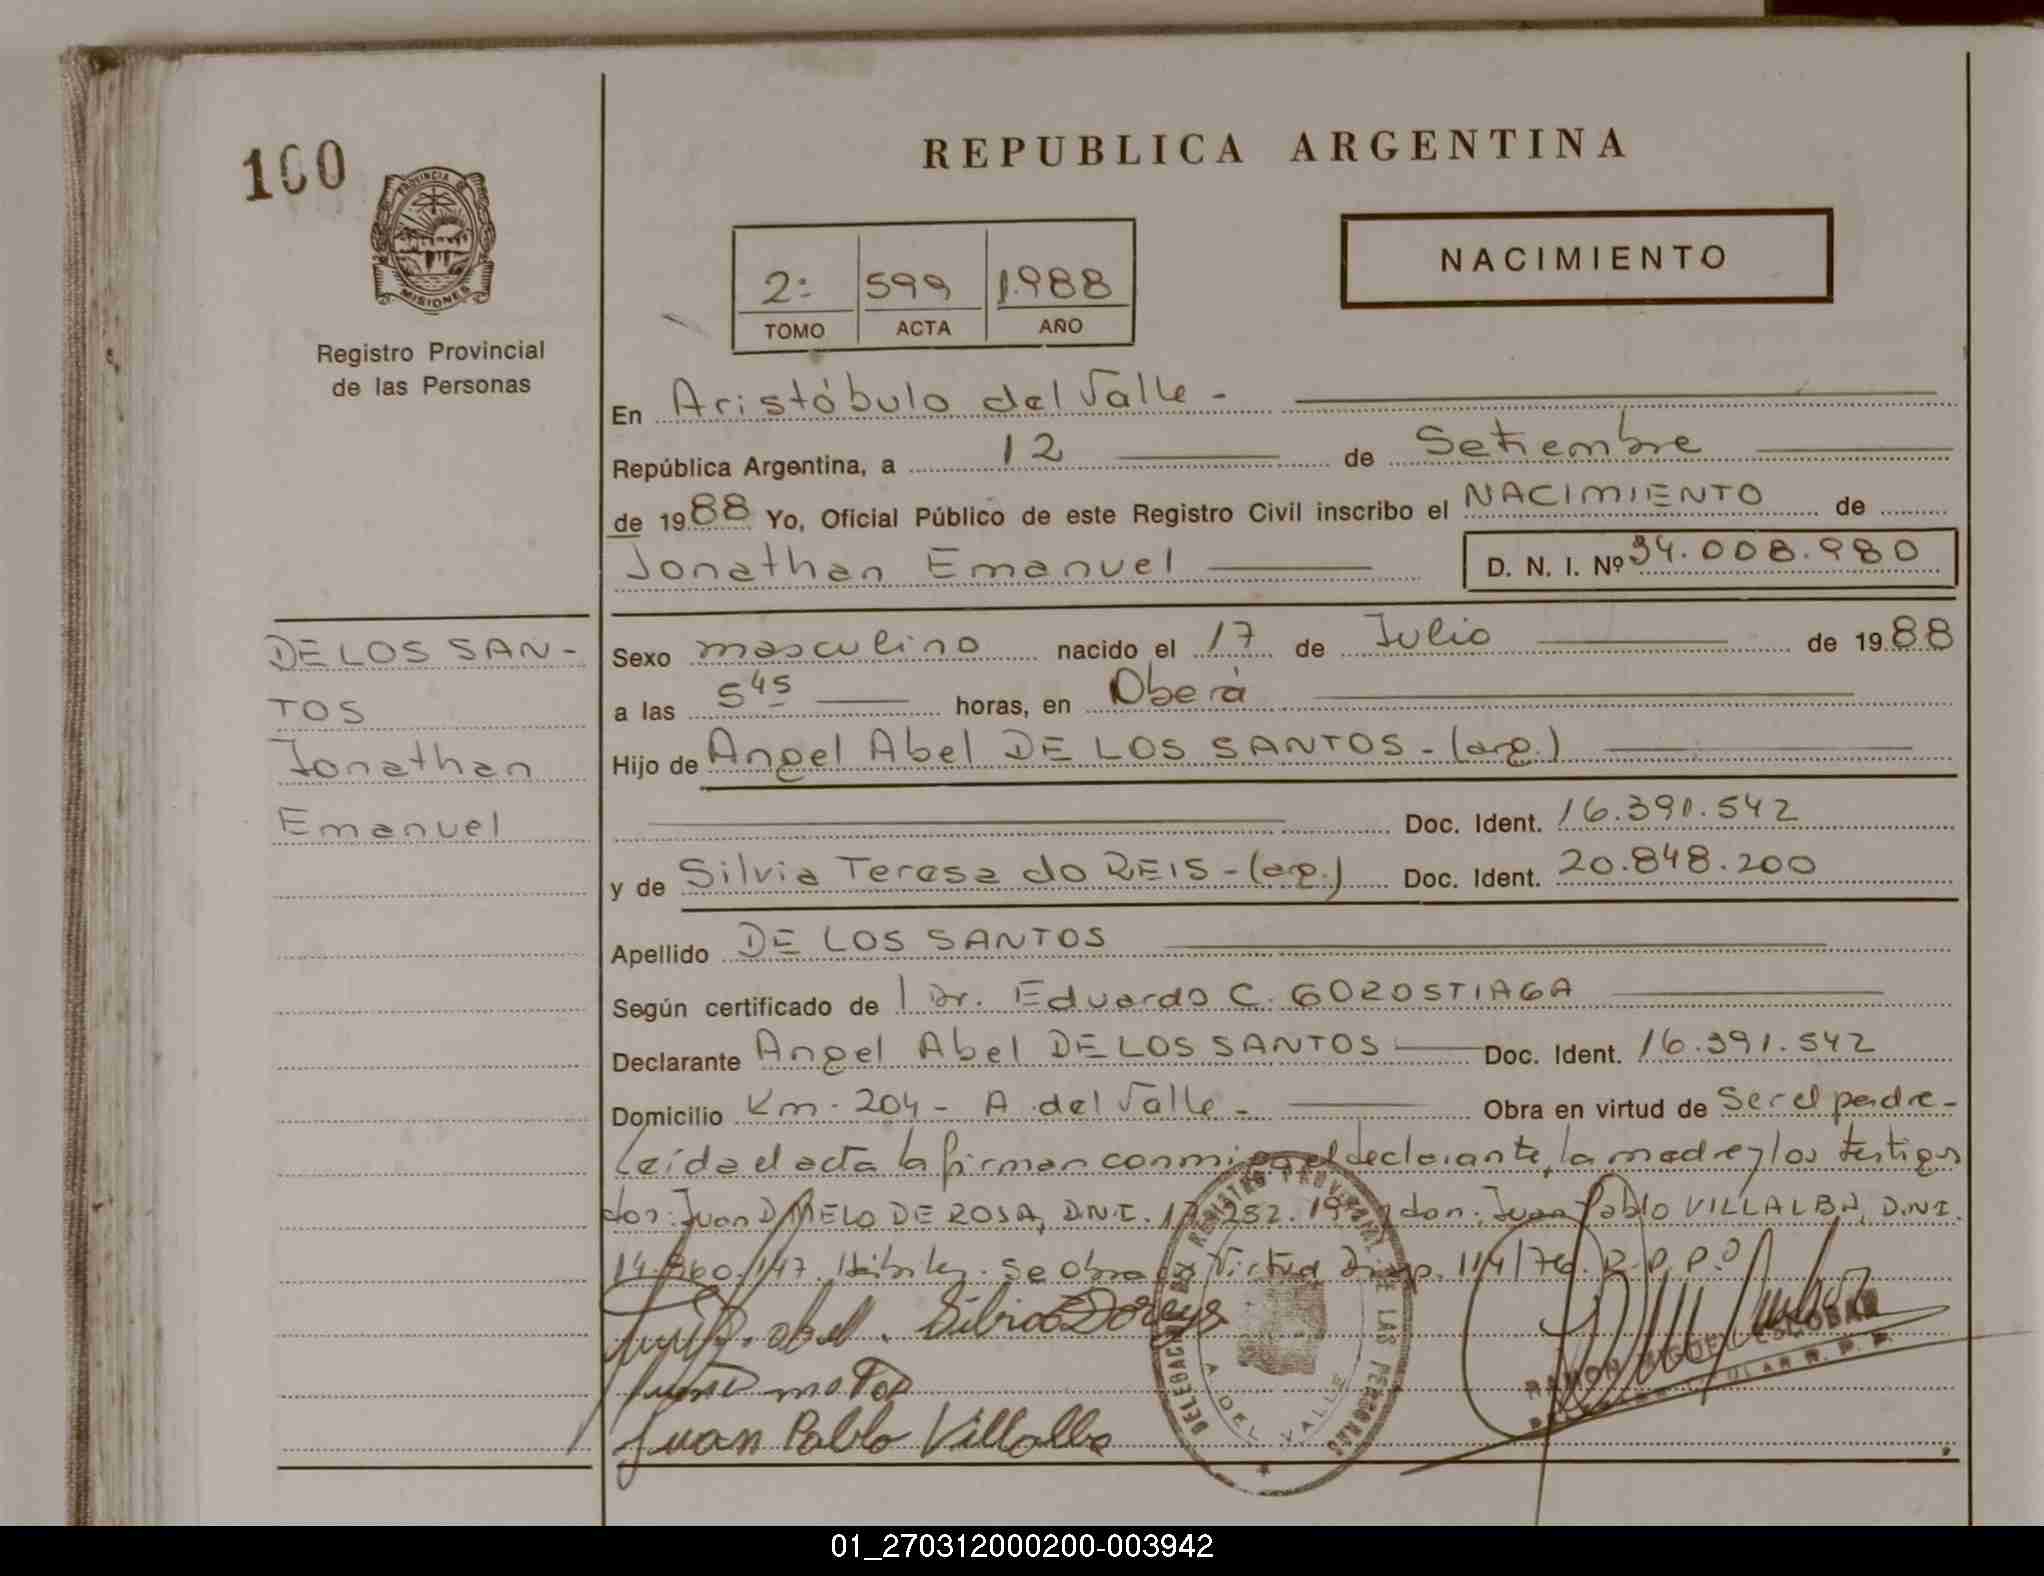 100
REPUBLICA ARGENTINA
PROVINCIA DE
MISIONES
Registro Provincial
de las Personas
NACIMIENTO
2: 599 1.988
TOMO ACTA AÑO
En Aristóbulo del Valle -
República Argentina, a 12 de Setiembre
de 1988 Yo, Oficial Público de este Registro Civil inscribo el NACIMIENTO de
Jonathan Emanuel D. N. I. Nº 34.008.980
DE LOS SAN-
TOS
Jonathan
Emanuel
Sexo masculino nacido el 17 de Julio de 1988
a las 5 45 horas, en Oberá
Hijo de Angel Abel DE LOS SANTOS - (arg.)
Doc. Ident. 16.391.542
y de Silvia Teresa do REIS - (arg.) Doc. Ident. 20.848.200
Apellido DE LOS SANTOS
Según certificado de l Dr. Eduardo C. GOROSTIAGA
Declarante Angel Abel DE LOS SANTOS Doc. Ident. 16.391.542
Domicilio Km. 204 - A. del Valle - Obra en virtud de Ser el padre -
Leída el acta la firman conmigo el declarante, la madre y los testigos
don: Juan DE ROSA, D.N.I. don: Juan Pablo VILLALBA, D.N.I.
Se obra Virtud Disp. 114/76. R.P.P.
Juan Pablo Villalba
DELEGACION REGISTRO PROVINCIAL DE LAS PERSONAS
A. DEL VALLE
RAMON MIGUEL ESCOBAR
TITULAR R. P. P.
01_270312000200-003942